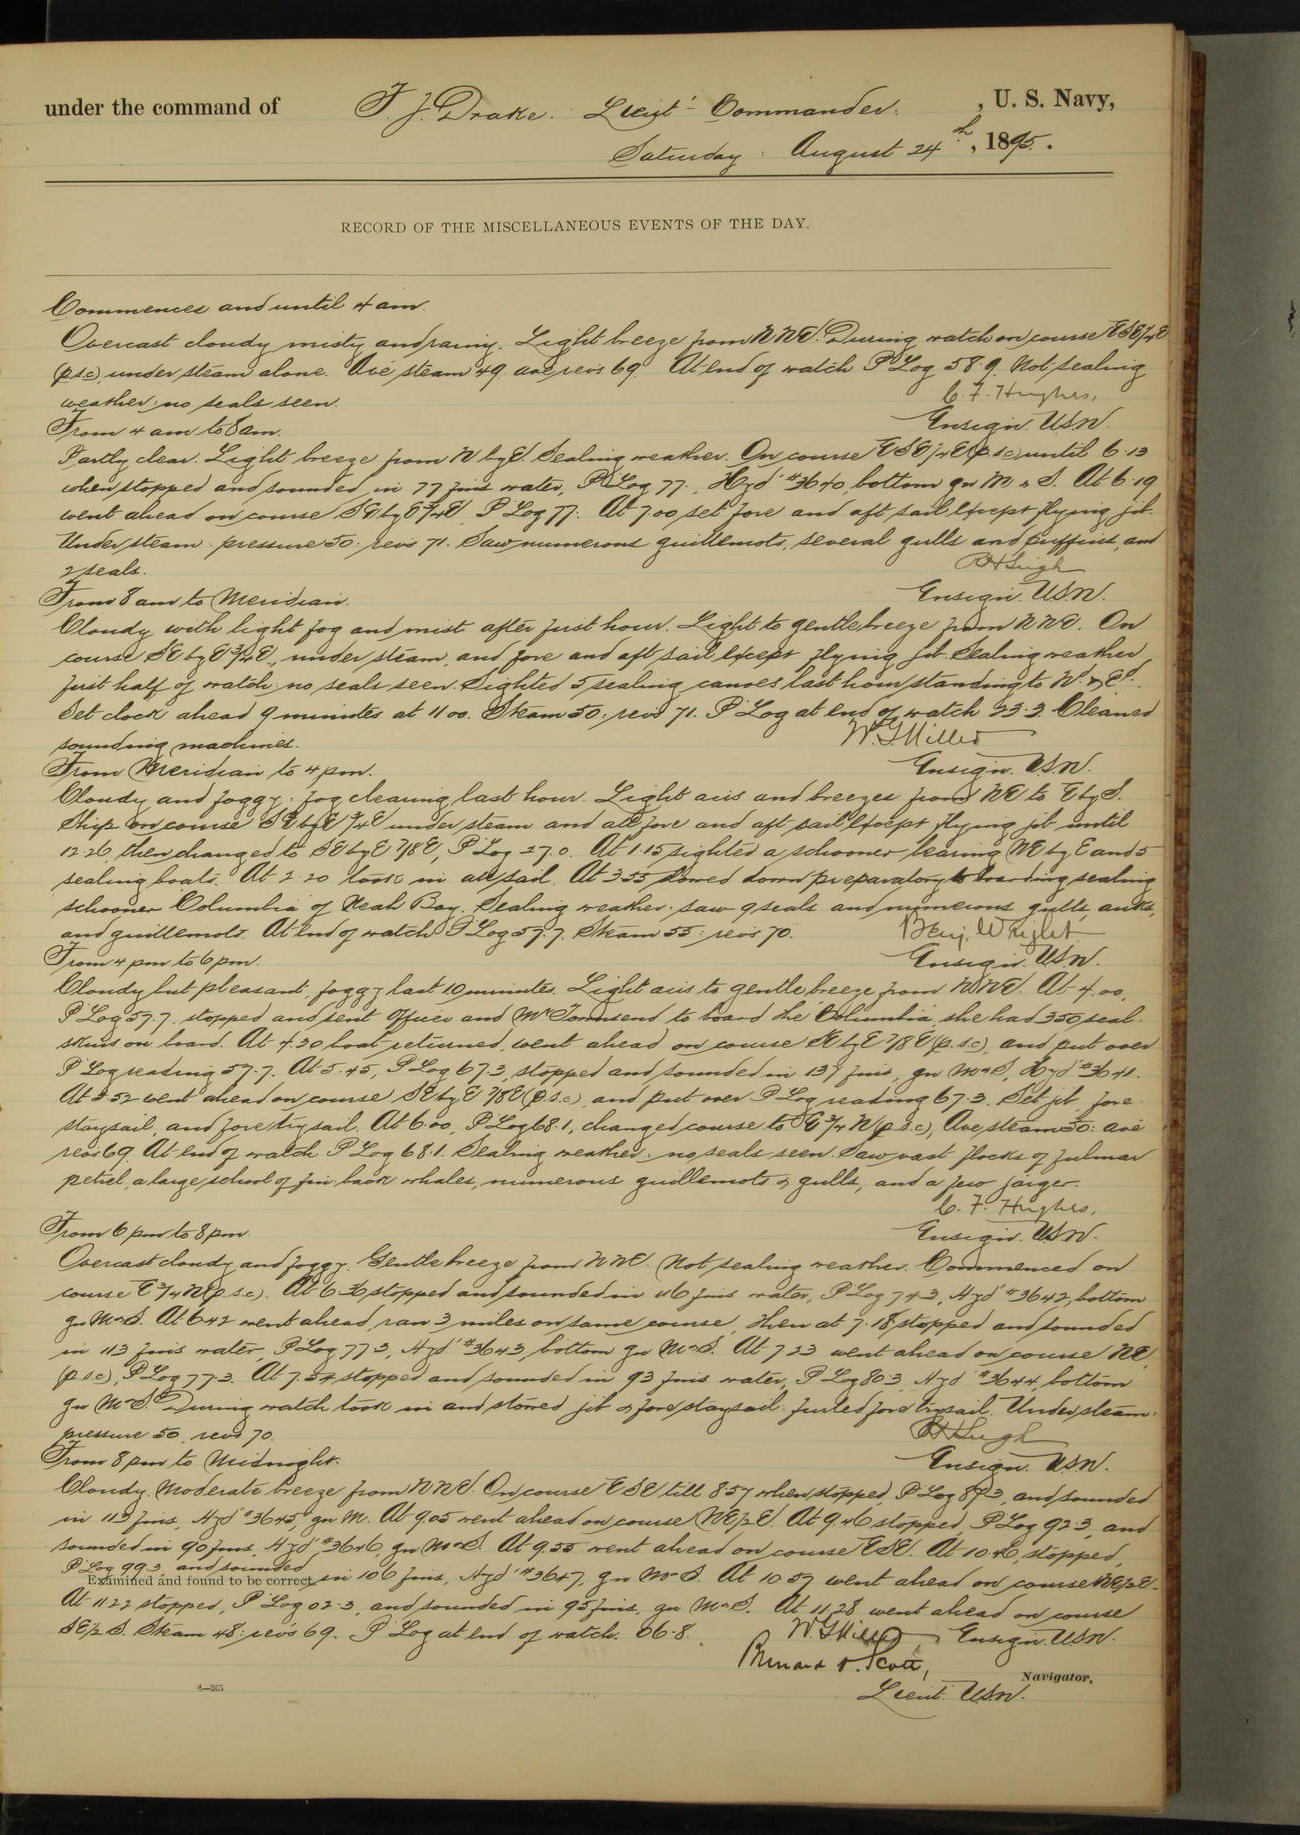 under the command of F. J. Drake. Lieut-Commander. , U. S. Navy,
Saturday August 24th, 1895.
RECORD OF THE MISCELLANEOUS EVENTS OF THE DAY.
Commences and until 4 am.
Overcast cloudy misty and rainy. Light breeze from NNE. During watch on course ESE1/4E
(p.s.c), under steam alone. Ave steam 49. ave revs 69. At end of watch P Log 58.9. Not sealing
weather: no seals seen. C. F. Hughes,
From 4 am to 8 am. Ensign. USN.
Partly clear. Light breeze from N by E. Sealing weather. On course ESE1/4E (p.s.c) until 6.13
when stopped and sounded in 77 fms water, P Log 77., Hyd #3640, bottom gn M & S. At 6.19
went ahead on course SE by E3/4E, P Log 77. At 7.00 set fore and aft sail except flying jib.
Under steam: pressure 50: revs 71. Saw numerous guillemots, several gulls and puffins, and
2 seals. R H Leigh
From 8 am to Meridian. Ensign. USN.
Cloudy with light fog and mist after first hour. Light to gentle breeze from NNE. On
course SE by E3/4E., under steam, and fore and aft sail except flying jib. Sealing weather
first half of watch: no seals seen. Sighted 5 sealing canoes last hour standing to N. & Ed.
Set clock ahead 9 minutes at 11.00. Steam 50: revs 71. P Log at end of watch 23.3. Cleaned
sounding machines. W. G. Miller
From Meridian to 4 pm. Ensign. USN.
Cloudy and foggy: fog clearing last hour. Light airs and breezes from NE to E by S.
Ship on course SE by E 3/4E under steam and all fore and aft sail except flying jib until
12.26, then changed to SE by E 7/8E, P Log 27.0. At 1.15 sighted a schooner bearing NE by E and 5
sealing boats. At 2.20 took in all sail. At 3.55 slowed down preparatory to boarding sealing
schooner Columbia of Neah Bay. Sealing weather: saw 9 seals and numerous gulls, auks,
and guillemots. At end of watch P Log 57.7. Steam 55: revs 70. Benj. Wright
From 4 pm to 6 pm. Ensign USN.
Cloudy but pleasant, foggy last 10 minutes. Light airs to gentle breeze from NNE. At 4.00,
P Log 57.7, stopped and sent Officer and Mr Townsend to board the Columbia, she had 350 seal-
skins on board. At 4.30 boat returned, went ahead on course SE by E 7/8E (p.s.c), and put over
P Log reading 57.7. At 5.45, P Log 67.3, stopped and sounded in 137 fms, gn M & S, Hyd #3641.
At 5.52 went ahead on course SE by E 7/8E (p.s.c), and put over P Log reading 67.3. Set jib, fore
staysail, and fore trysail. At 6.00, P Log 68.1, changed course to E3/4N (p.s.c), Ave steam 50: ave
revs 69. At end of watch P Log 68.1. Sealing weather: no seals seen. Saw vast flocks of fulmar
petrel, a large school of fin back whales, numerous guillemots & gulls, and a few jaeger.
C. F. Hughes,
From 6 pm to 8 pm. Ensign. USN.
Overcast cloudy and foggy. Gentle breeze from NNE. Not sealing weather. Commenced on
course E3/4N (p.s.c). At 6.36 stopped and sounded in 116 fms water, P Log 74.3, Hyd #3642, bottom
gn M & S. At 6.42 went ahead, ran 3 miles on same course, then at 7.18, stopped and sounded
in 113 fms water, P Log 77.3, Hyd #3643, bottom gn M & S. At 7.23 went ahead on course NE,
(p.s.c), P Log 77.3. At 7.54 stopped and sounded in 93 fms water, P Log 80.3, Hyd #3644, bottom
gn M & S. During watch took in and stowed jib & fore staysail: furled fore trysail. Under steam:
pressure 50, revs 70. R H Leigh
From 8 pm to Midnight. Ensign. USN.
Cloudy. Moderate breeze from NNE. On course ESE till 8.57 when stopped, P Log 87.3, and sounded
in 113 fms, Hyd #3645, gn M. At 9.05 went ahead on course NE1/2E. At 9.46 stopped, P Log 92.3, and
sounded in 90 fms, Hyd #3646, gn M & S. At 9.55 went ahead on course ESE. At 10.46, stopped,
P Log 99.3, and sounded
Examined and found to be correct, in 106 fms, Hyd #3647, gn M & S. At 10.57 went ahead on course NE1/2E.
At 11.22 stopped, P Log 02.3, and sounded in 95 fms, gn M & S. At 11.28 went ahead on course
SE1/2S. Steam 48: revs 69. P Log at end of watch. 06.8. W G Miller, Ensign. USN.
Navigator.
Lieut. USN.